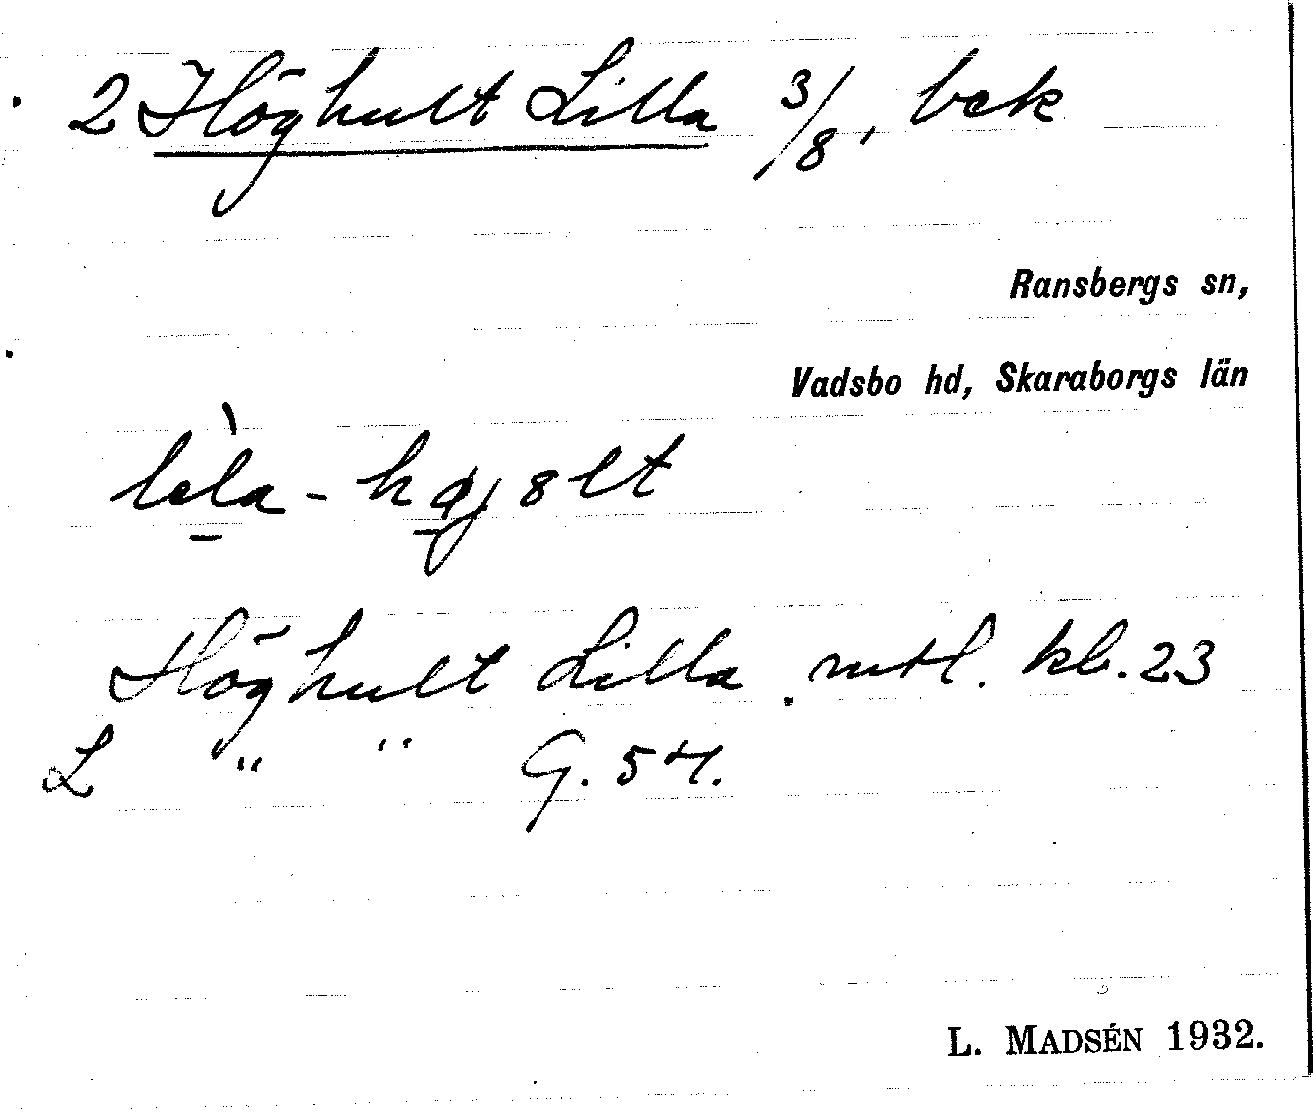 2 Höghult Lilla 3/8, bck
Ransbergs sn,
Vadsbo hd, Skaraborgs län
lèla - høj8lt
Höghult Lilla . mtl. kb. 23
L " " G. 54.
L. MADSÉN 1932.